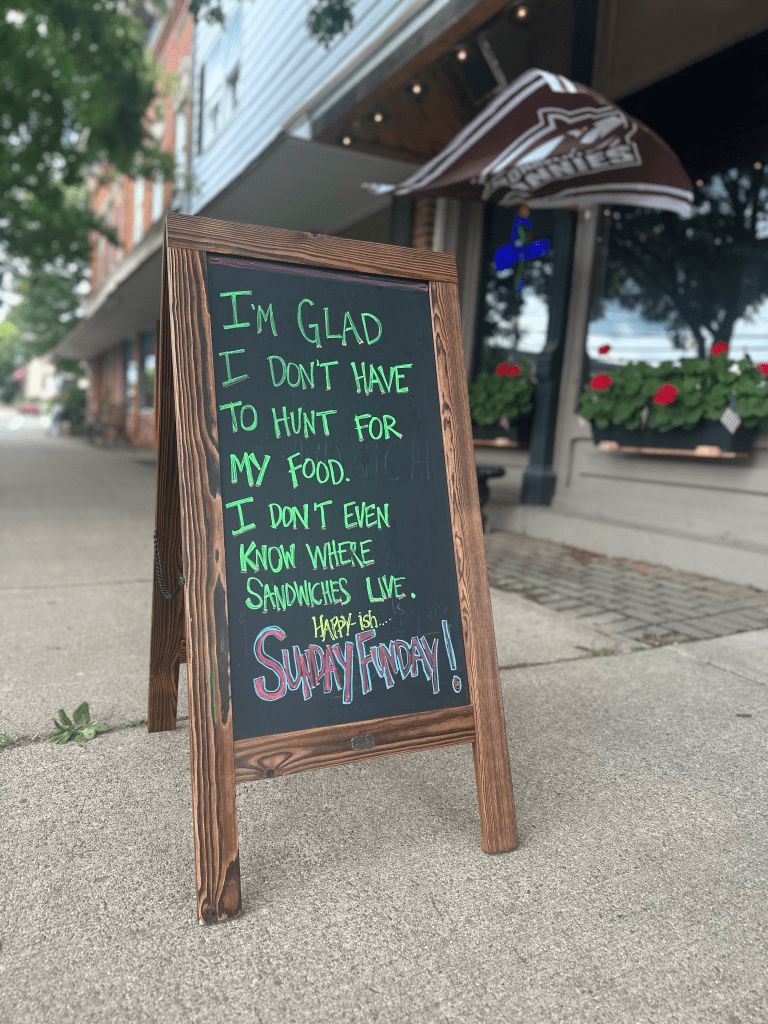 I'M GLAD
I DON'T HAVE
TO HUNT FOR
MY FOOD.
I DON'T EVEN
KNOW WHERE
SANDWICHES LIVE.
HAPPY-ish....
SUNDAY FUNDAY!
ANNIES